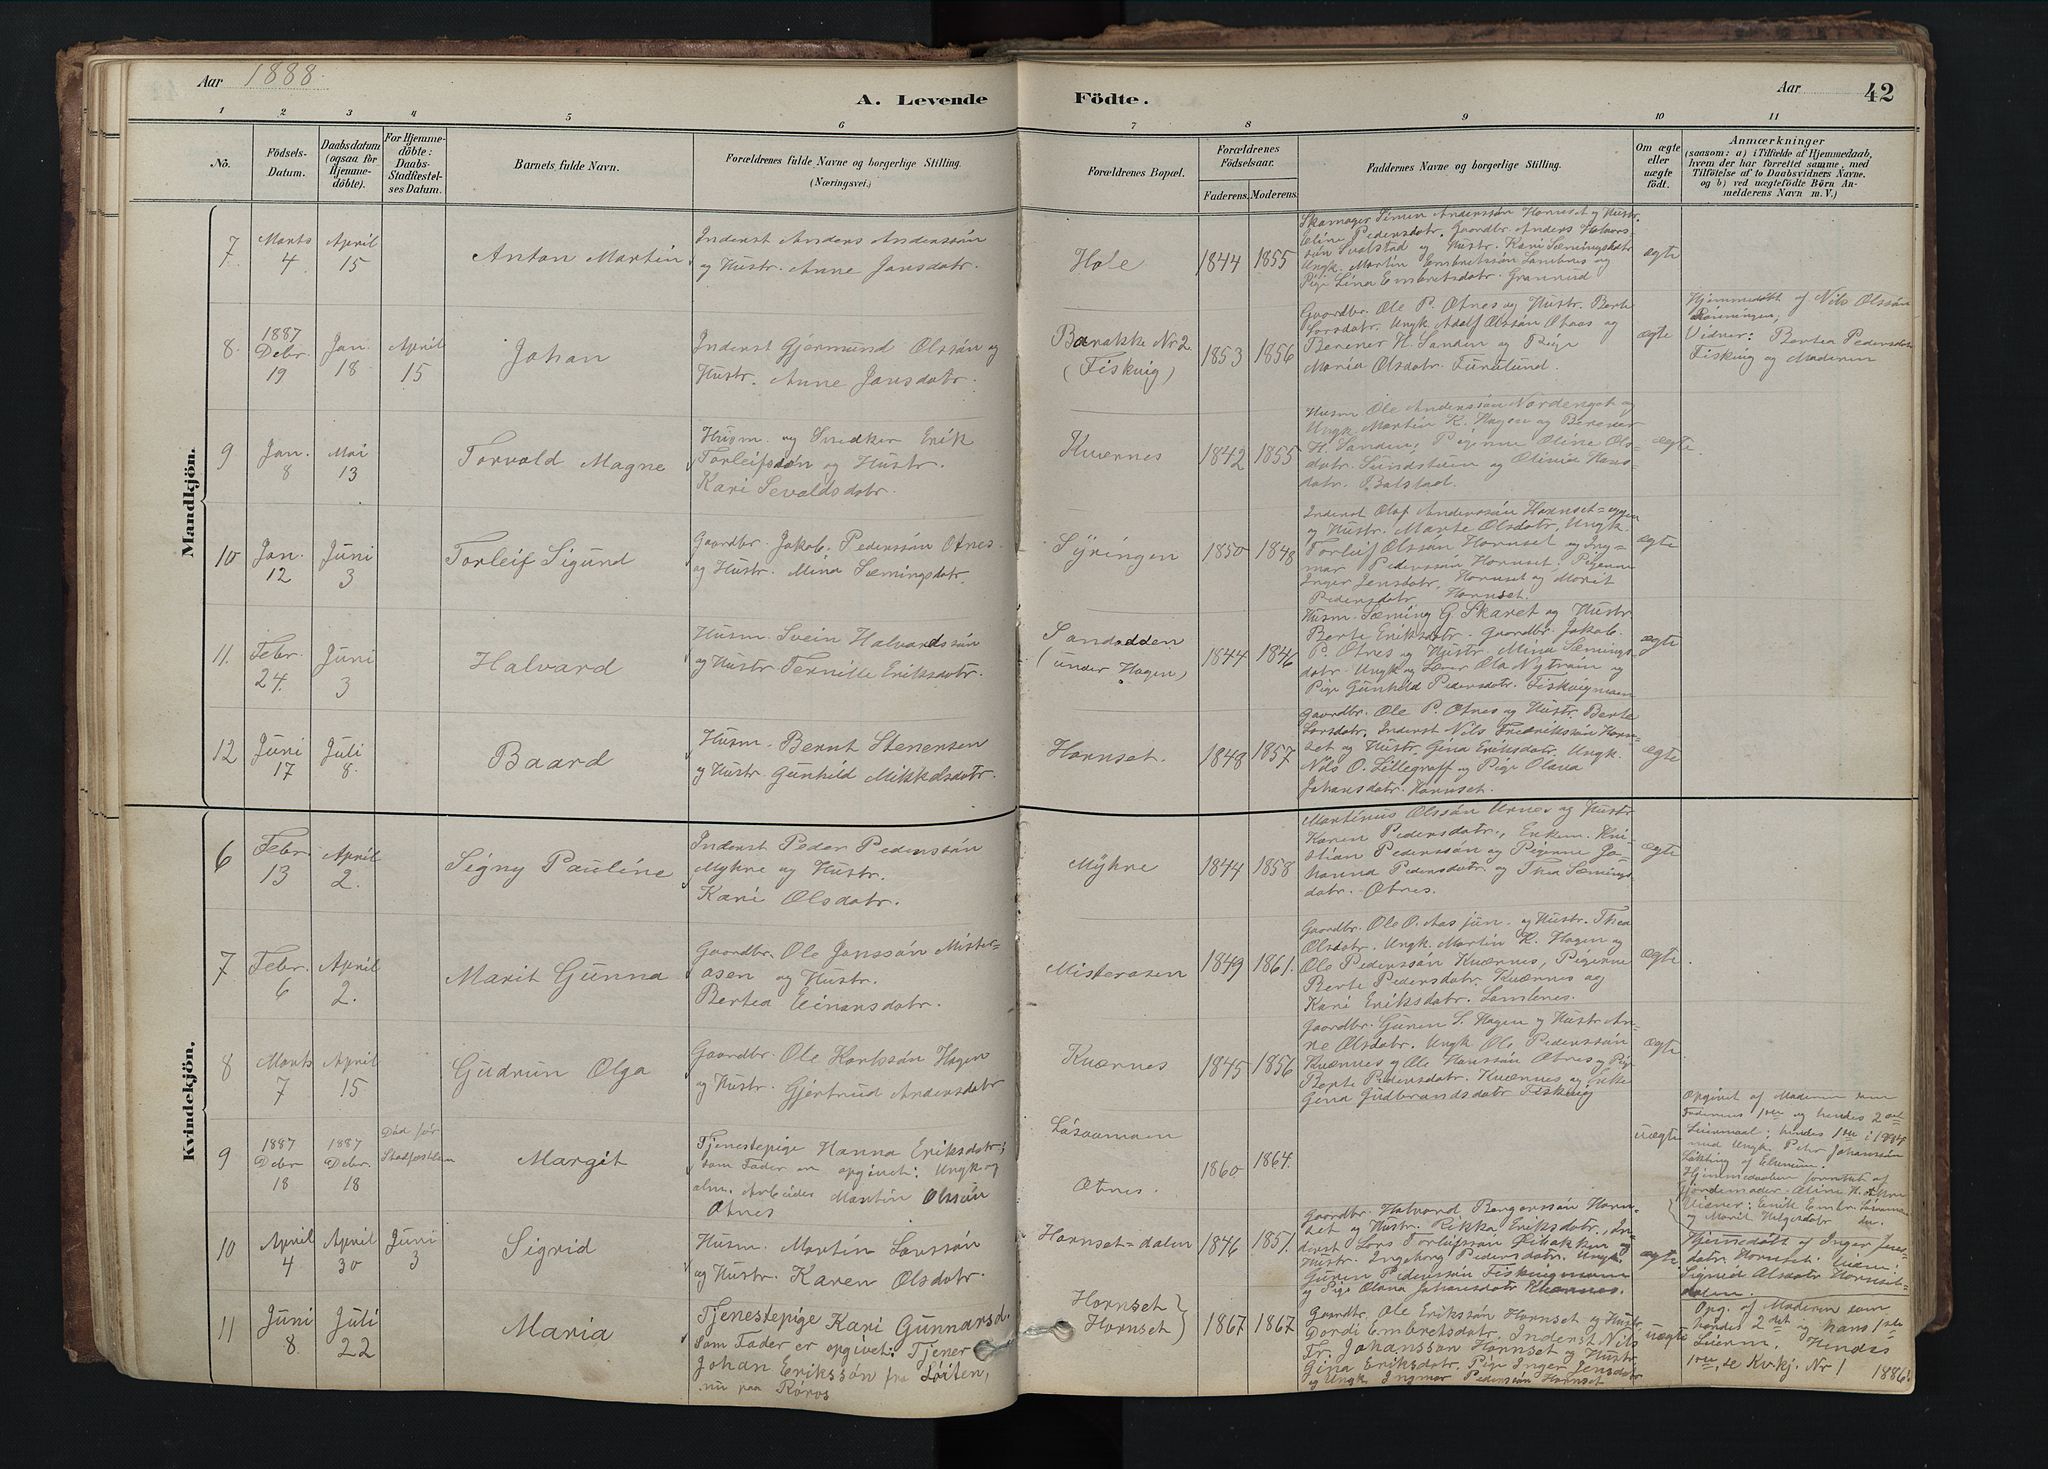 Aar 1888.
A. Levende Födte.
Aar
42
1 2 3 4 5 6 7 8 9 10 11
No.
Födsels-
Datum.
Daabsdatum
(ogsaa for
Hjemme-
döbte).
For Hjemme-
döbte:
Daabs-
Stadfæstel-
ses Datum.
Barnets fulde Navn.
Forældrenes fulde Navne og borgerlige Stilling.
(Næringsvei.)
Forældrenes Bopæl.
Forældrenes
Födselsaar.
Faderens. Moderens.
Faddernes Navne og borgerlige Stilling.
Om ægte
eller
uægte
födt.
Anmærkninger
(saasom: a) i Tilfælde af Hjemmedaab,
hvem der har forrettet samme, med
Tilföielse af to Daabsvidners Navne.
og b) ved uægtefödte Börn An-
melderens Navn m. V.)
Mandkjön.
7
Marts
4
April
15
Anton Martin
Inderst Anders Anderssön
og Hustr. Anne Jonsdatr.
Hole
1844 1855
Skomager Simen Anderssön Hornset og Hustr.
Eline Pedersdatr. Gaardbr. Anders
sön Svalstad og Hustr. Kari Sæmingsdatr
Ungk. Martin Embretssön Lombnes og
Pige Lina Embretsdatr. Granrud
ægte
8.
1887
Debr.
19
Jan.
18
April
15
Johan
Inderst Gjermund Olssön og
Hustr. Anne Jonsdatr.
Barakke Nr 2
(Fiskvig)
1853 1856
Gaardbr. Ole P. Otnes og Hustr. Berte
Larsdatr. Ungk. Adolf Olssön Otnes og
Berener H. Sanden og Pige
Maria Olsdatr. Furulund.
ægte
Hjemmedöbt af Nils Olssön
Vidner: Bertea Pedersdatr
Fiskvig og Moderen
9
Jan.
8
Mai
13
Torvald Magne
Husm. og Snedker Erik
Torleifssön og Hustr.
Kari Sevaldsdatr.
Kværnes
1842 1855
Husm Ole Anderssön Nordenget og
Ungk Martin K. Hagen og Berener
H. Sanden, Pigerne Oline Ols-
datr. Sundstuen og Olivia Hans-
datr. Bolstad.
ægte.
10
Jan.
12
Juni
3
Torleif Sigund
Gaardbr. Jakob Pederssön Otnes
og Hustr. Mina Sæmingsdatr.
Syringen
1850 1848
Inderst Olof Anderssön Hornset-eggen
og Hustr. Marte Olsdatr, Ungk.
Torleif Olssön Hornset og Ing-
mar Pederssön Hornset; Pigerne
Inger Jensdatr. Hornset og Morit
Pedersdatr Hornset.
ægte
11.
Febr.
24.
Juni
3
Halvard
Husm. Svein Halvardssön
og Hustr Pernille Eriksdatr.
Sandodden
(under Hagen)
1844 1846
Husm. Sæming G Skaret og Hustr
Berte Eriksdatr. Gaardbr. Jakob
P. Otnes og Hustr. Mina Sæmings-
datr. Ungk og Lærer Ola Nytrøen og
Pige Gunhild Pedersdatr. Fiskvigmoen
ægte
12
Juni
17
Juli
8.
Baard
Husm. Bernt Stenersen
og Hustr. Gunhild Mikkelsdatr.
Hornset.
1848 1857
Gaardbr. Ole P. Otnes og Hustr. Berte
Larsdatr, Inderst Nils Fredrikssön Horn-
set og Hustr. Gina Eriksdatr. Ungk.
Nils O. Lillegraff og Pige Olava
Johansdatr. Hornset.
ægte
Kvindekjön.
6
Febr.
13
April
2.
Signy Pauline
Inderst Peder Pederssön
Myhre og Hustr.
Kari Olsdatr.
Myhre
1844 1858
Martinus Olssön Urnes og Hustr
Karen Pedersdatr., Enkem. Kri-
stian Pederssön og Pigerne Jo-
hanna Pedersdatr. og Thea Sæmings
datr. Otnes.
ægte
7
Febr.
6
April
2.
Marit Gunna
Gaardbr. Ole Jonssön Mister-
osen og Hustr.
Bertea Einarsdatr.
Misterosen
1849 1861.
Gaardbr. Ole O. Aas jun. og Hustr. Thea
Olsdatr. Ungk. Martin K. Hagen og
Ole Pederssön Kværnes, Pigerne
Berte Pedersdatr. Kværnes og
Kari Eriksdatr. Lombnes.
ægte.
8
Marts
7
April
15
Gudrun Olga
Gaardbr. Ole Karlssön Hagen
og Hustr. Gjertrud Andersdatr
Kværnes
1845 1856
Gaardbr. Guren S. Hagen og Hustr An-
ne Olsdatr. Ungk. Ole Pederssön
Kværnes og Ole Hanssön Otnes og Pig.
Berte Pedersdatr. Kværnes og Enke
Gina Gudbrandsdatr Fiskvig
ægte
9
1887
Debr.
18
1887
Debr.
18
Död før
Stadfæstelsen
Margit
Tjenestepige Hanna Eriksdatr;
som Fader er opgivet: Ungk og
alm. Arbeider Martin Olssön
Otnes
Lösaamoen
Otnes.
1860 1864.
uægte
Opgivet af Moderen som
Faderens 1ste og hendes 2det
Leiermaal; hendes 1ste i
med Ungk. Peter Johanssön
Lökting af Elverum.
Hjemmedaaben forrettet af
Vidner: Erik Embr.
og Marit Helgesdatr do.
10
April
4
April
30
Juni
3
Sigrid
Husm. Martin Larssön
og Hustr. Karen Olsdatr.
Hornset-dalen
1846 1851.
Gaardbr. Halvard Bergerssön Horn-
set og Hustr. Rikka Eriksdatr., In-
derst Lars Torleifssön Öibakken og
Hustr. Ingeborg Pedersdatr. Ungk
Guren Pederssön Fiskvigmoen
og Pige Olana Johansdatr Kværnes.
ægte
Hjemmedöbt af Inger Jens-
datr. Hornset. Vidne:
Sigrid Olsdatr Hornset-
dalen.
11
Juni
8.
Juli
22
Maria
Tjenestepige Kari Gunnarsd.
som Fader er opgivet: Tjener
Johan Erikssön fra Löiten,
nu paa Röros
Hornset
Hornset
1867 1867
Gaardbr. Ole Erikssön Hornset og Hustr
Dordi Embretsdatr. Inderst Nils
Fr. Johanssön Hornset og Hustr.
Gina Eriksdatr. Pige Inger Jensdatr
og Ungk Ingmar Pederssön Hornset
uægte
Opg. af Moderen som
hendes 2det og hans 1ste
Leierm. Hendes
1ste, se Kvkj. Nr 1 1886.